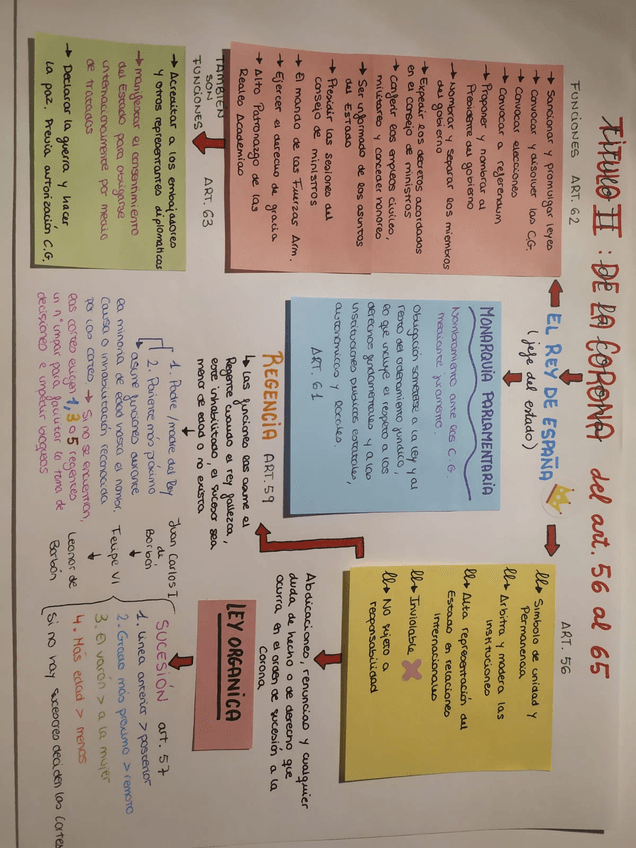 TÍTULO II : DE LA CORONA del art. 56 al 65
EL REY DE ESPAÑA
(jefe del estado)
FUNCIONES ART. 62
→ Sancionar y promulgar leyes
→ Convocar y disolver las C.G.
→ Convocar elecciones
→ Convocar a referendum
→ Proponer y nombrar al
Presidente del gobierno
→ Nombrar y separar los miembros
del gobierno
→ Expedir los decretos acordados
en el consejo de ministros
→ Conferir los empleos civiles,
militares y conceder honores
→ Ser informado de los asuntos
del Estado
→ Presidir las sesiones del
consejo de ministros
→ El mando de las Fuerzas Arm.
→ Ejercer el derecho de gracia
→ Alto Patronazgo de las
Reales Academias
TAMBIÉN
SON
FUNCIONES
ART. 63
→ Acreditar a los embajadores
y otros representantes diplomáticos
→ manifestar el consentimiento
del Estado para obligarse
internacionalmente por medio
de tratados
→ Declarar la guerra y hacer
la paz. Previa autorización C.G.
MONARQUÍA PARLAMENTARIA
Nombramiento ante las C.G.
mediante juramento.
Obligación someterse a la ley y al
resto del ordenamiento jurídico,
lo que incluye el respeto a los
derechos fundamentales y a las
instituciones públicas estatales,
autonómicas y locales.
ART. 61
REGENCIA ART. 59
↳ Las funciones las asume el
Regente cuando el rey fallezca,
esté inhabilitado, el sucesor sea
menor de edad o no exista
1. Padre/madre del Rey
2. Pariente más próximo
↳ asume funciones durante
la minoría de edad hasta el nombr.
Causa o inhabilitación reconocida
por las cortes. → Si no se encuentran,
las cortes eligen 1, 3 o 5 regentes
un nº impar para facilitar la toma de
decisiones e impedir bloqueos
ART. 56
Símbolo de unidad y
Permanencia
Arbitra y modera las
instituciones
Alta representación del
Estado en relaciones
internacionales
Inviolable
No sujeto a
responsabilidad
Abdicaciones, renuncias y cualquier
duda de hecho o de derecho que
ocurra en el orden de sucesión a la
Corona
LEY ORGANICA
SUCESIÓN art. 57
1. Línea anterior > posterior
2. Grado más próximo > remoto
3. El varón > a la mujer
4. Más edad > menos
Si no hay sucesores deciden las Cortes
Juan Carlos I
de
Borbón
↓
Felipe VI
↓
Leonor de
Borbón